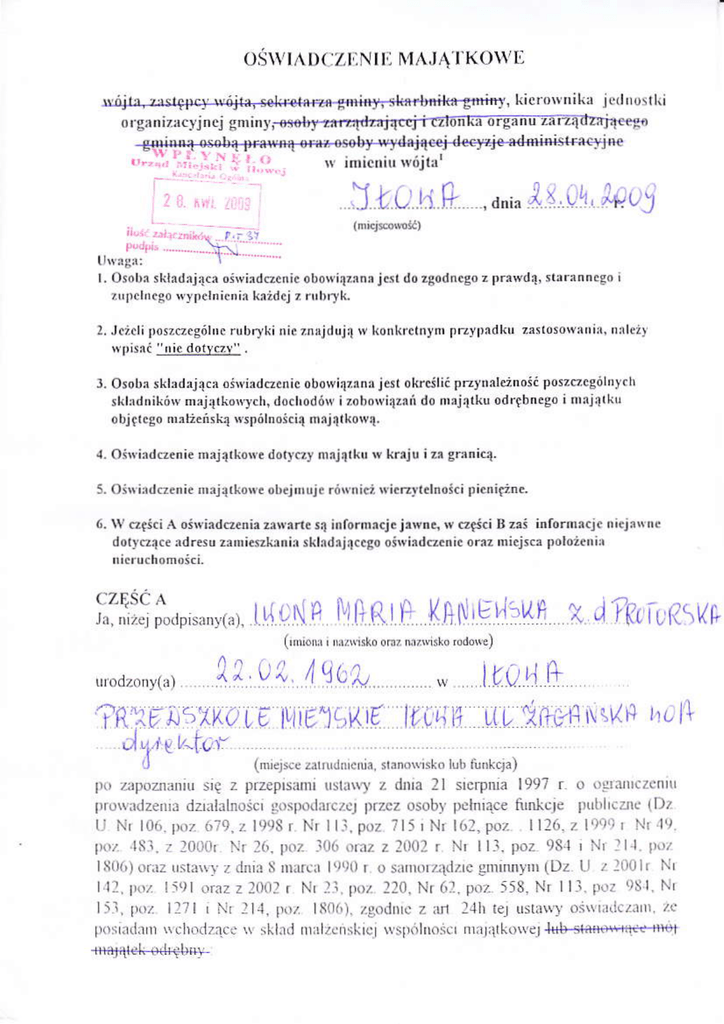 OŚWIADCZENIE MAJĄTKOWE
wójta, zastępcy wójta, sekretarza gminy, skarbnika gminy, kierownika jednostki
organizacyjnej gminy, osoby zarządzającej i członka organu zarządzającego
gminną osobą prawną oraz osoby wydającej decyzje administracyjne
w imieniu wójta¹
WPŁYNĘŁO
Urząd Miejski w Iłowej
Kancelaria Ogólna
20. KWI. 2009
ilość załączników
podpis
IŁOWA, dnia 28.04.2009
(miejscowość)
Uwaga:
1. Osoba składająca oświadczenie obowiązana jest do zgodnego z prawdą, starannego i
zupełnego wypełnienia każdej z rubryk.
2. Jeżeli poszczególne rubryki nie znajdują w konkretnym przypadku zastosowania, należy
wpisać "nie dotyczy" .
3. Osoba składająca oświadczenie obowiązana jest określić przynależność poszczególnych
składników majątkowych, dochodów i zobowiązań do majątku odrębnego i majątku
objętego małżeńską wspólnością majątkową.
4. Oświadczenie majątkowe dotyczy majątku w kraju i za granicą.
5. Oświadczenie majątkowe obejmuje również wierzytelności pieniężne.
6. W części A oświadczenia zawarte są informacje jawne, w części B zaś informacje niejawne
dotyczące adresu zamieszkania składającego oświadczenie oraz miejsca położenia
nieruchomości.
CZĘŚĆ A
Ja, niżej podpisany(a), IWONA MARIA KANIEWSKA z d PROTORSKA
(imiona i nazwisko oraz nazwisko rodowe)
urodzony(a) 22.02.1962 w IŁOWA
PRZEDSZKOLE MIEJSKIE IŁOWA UL ŻAGAŃSKA 40A
dyrektor
(miejsce zatrudnienia, stanowisko lub funkcja)
po zapoznaniu się z przepisami ustawy z dnia 21 sierpnia 1997 r. o ograniczeniu
prowadzenia działalności gospodarczej przez osoby pełniące funkcje publiczne (Dz.
U. Nr 106, poz. 679, z 1998 r. Nr 113, poz. 715 i Nr 162, poz. . 1126, z 1999 r. Nr 49,
poz. 483, z 2000r. Nr 26, poz. 306 oraz z 2002 r. Nr 113, poz. 984 i Nr 214, poz.
1806) oraz ustawy z dnia 8 marca 1990 r. o samorządzie gminnym (Dz. U. z 2001r. Nr
142, poz. 1591 oraz z 2002 r. Nr 23, poz. 220, Nr 62, poz. 558, Nr 113, poz. 984, Nr
153, poz. 1271 i Nr 214, poz. 1806), zgodnie z art. 24h tej ustawy oświadczam, że
posiadam wchodzące w skład małżeńskiej wspólności majątkowej lub stanowiące mój
majątek odrębny: